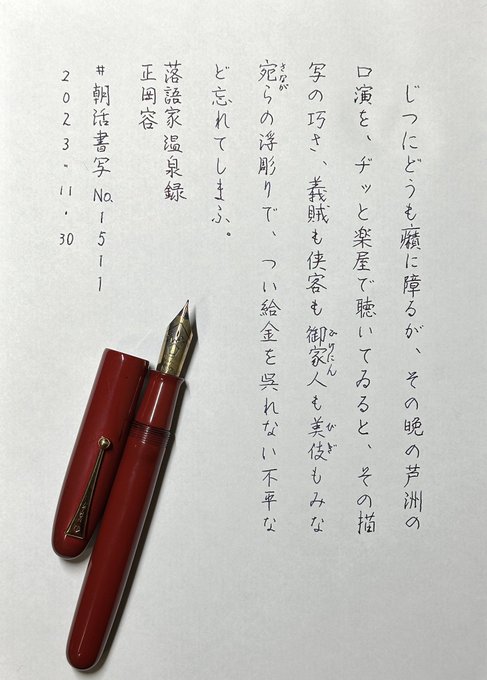 じつにどうも癪に障るが、その晩の芦洲の
口演を、ヂッと楽屋で聴いてゐると、その描
写の巧さ、義賊も侠客も御家人も美伎もみな
ごけにん
びぎ
宛らの浮彫りで、つい給金を呉れない不平な
さなが
ど忘れてしまふ。
落語家温泉録
正岡容
#朝活書写 No.1511
2023.11.30